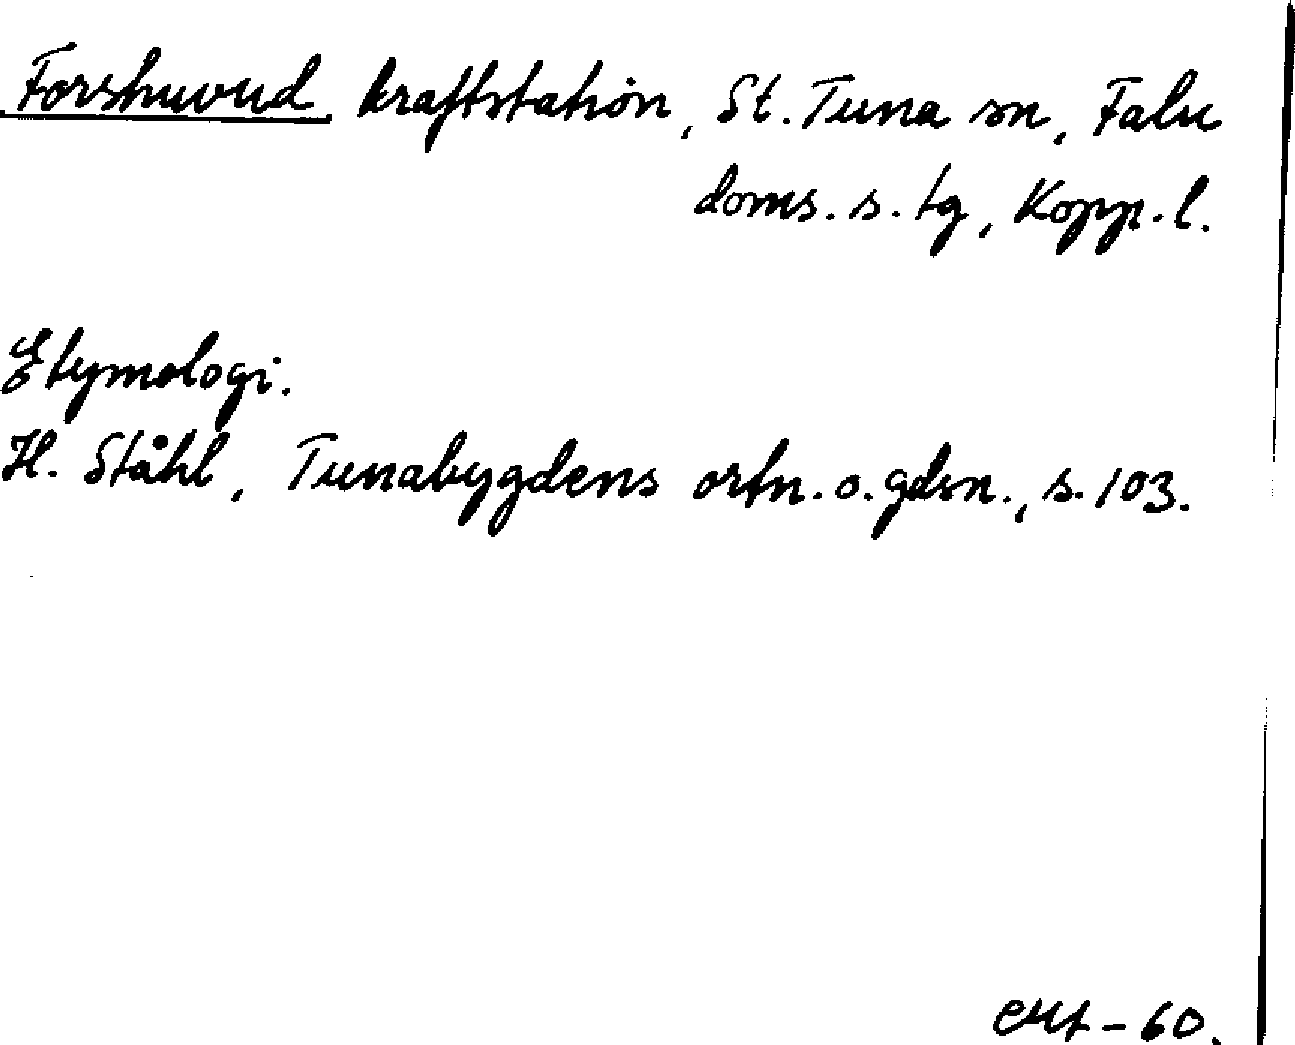 Forshuvud kraftstation, St. Tuna sn, Falu
doms. s. tg, Kopp. l.
Etymologi.
H. Ståhl, Tunabygdens ortn. o. gdsn., s. 103.
-60.